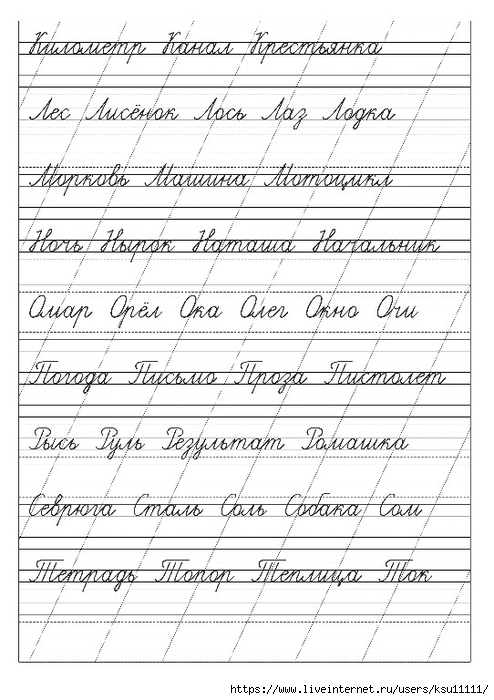 Километр Канал Крестьянка
Лес Лисёнок Лось Лаз Лодка
Морковь Машина Мотоцикл
Ночь Нырок Наташа Начальник
Омар Орёл Ока Олег Окно Очи
Погода Письмо Проза Пистолет
Рысь Руль Результат Ромашка
Севрюга Сталь Соль Собака Сом
Тетрадь Топор Теплица Ток
https://www.liveinternet.ru/users/ksu11111/